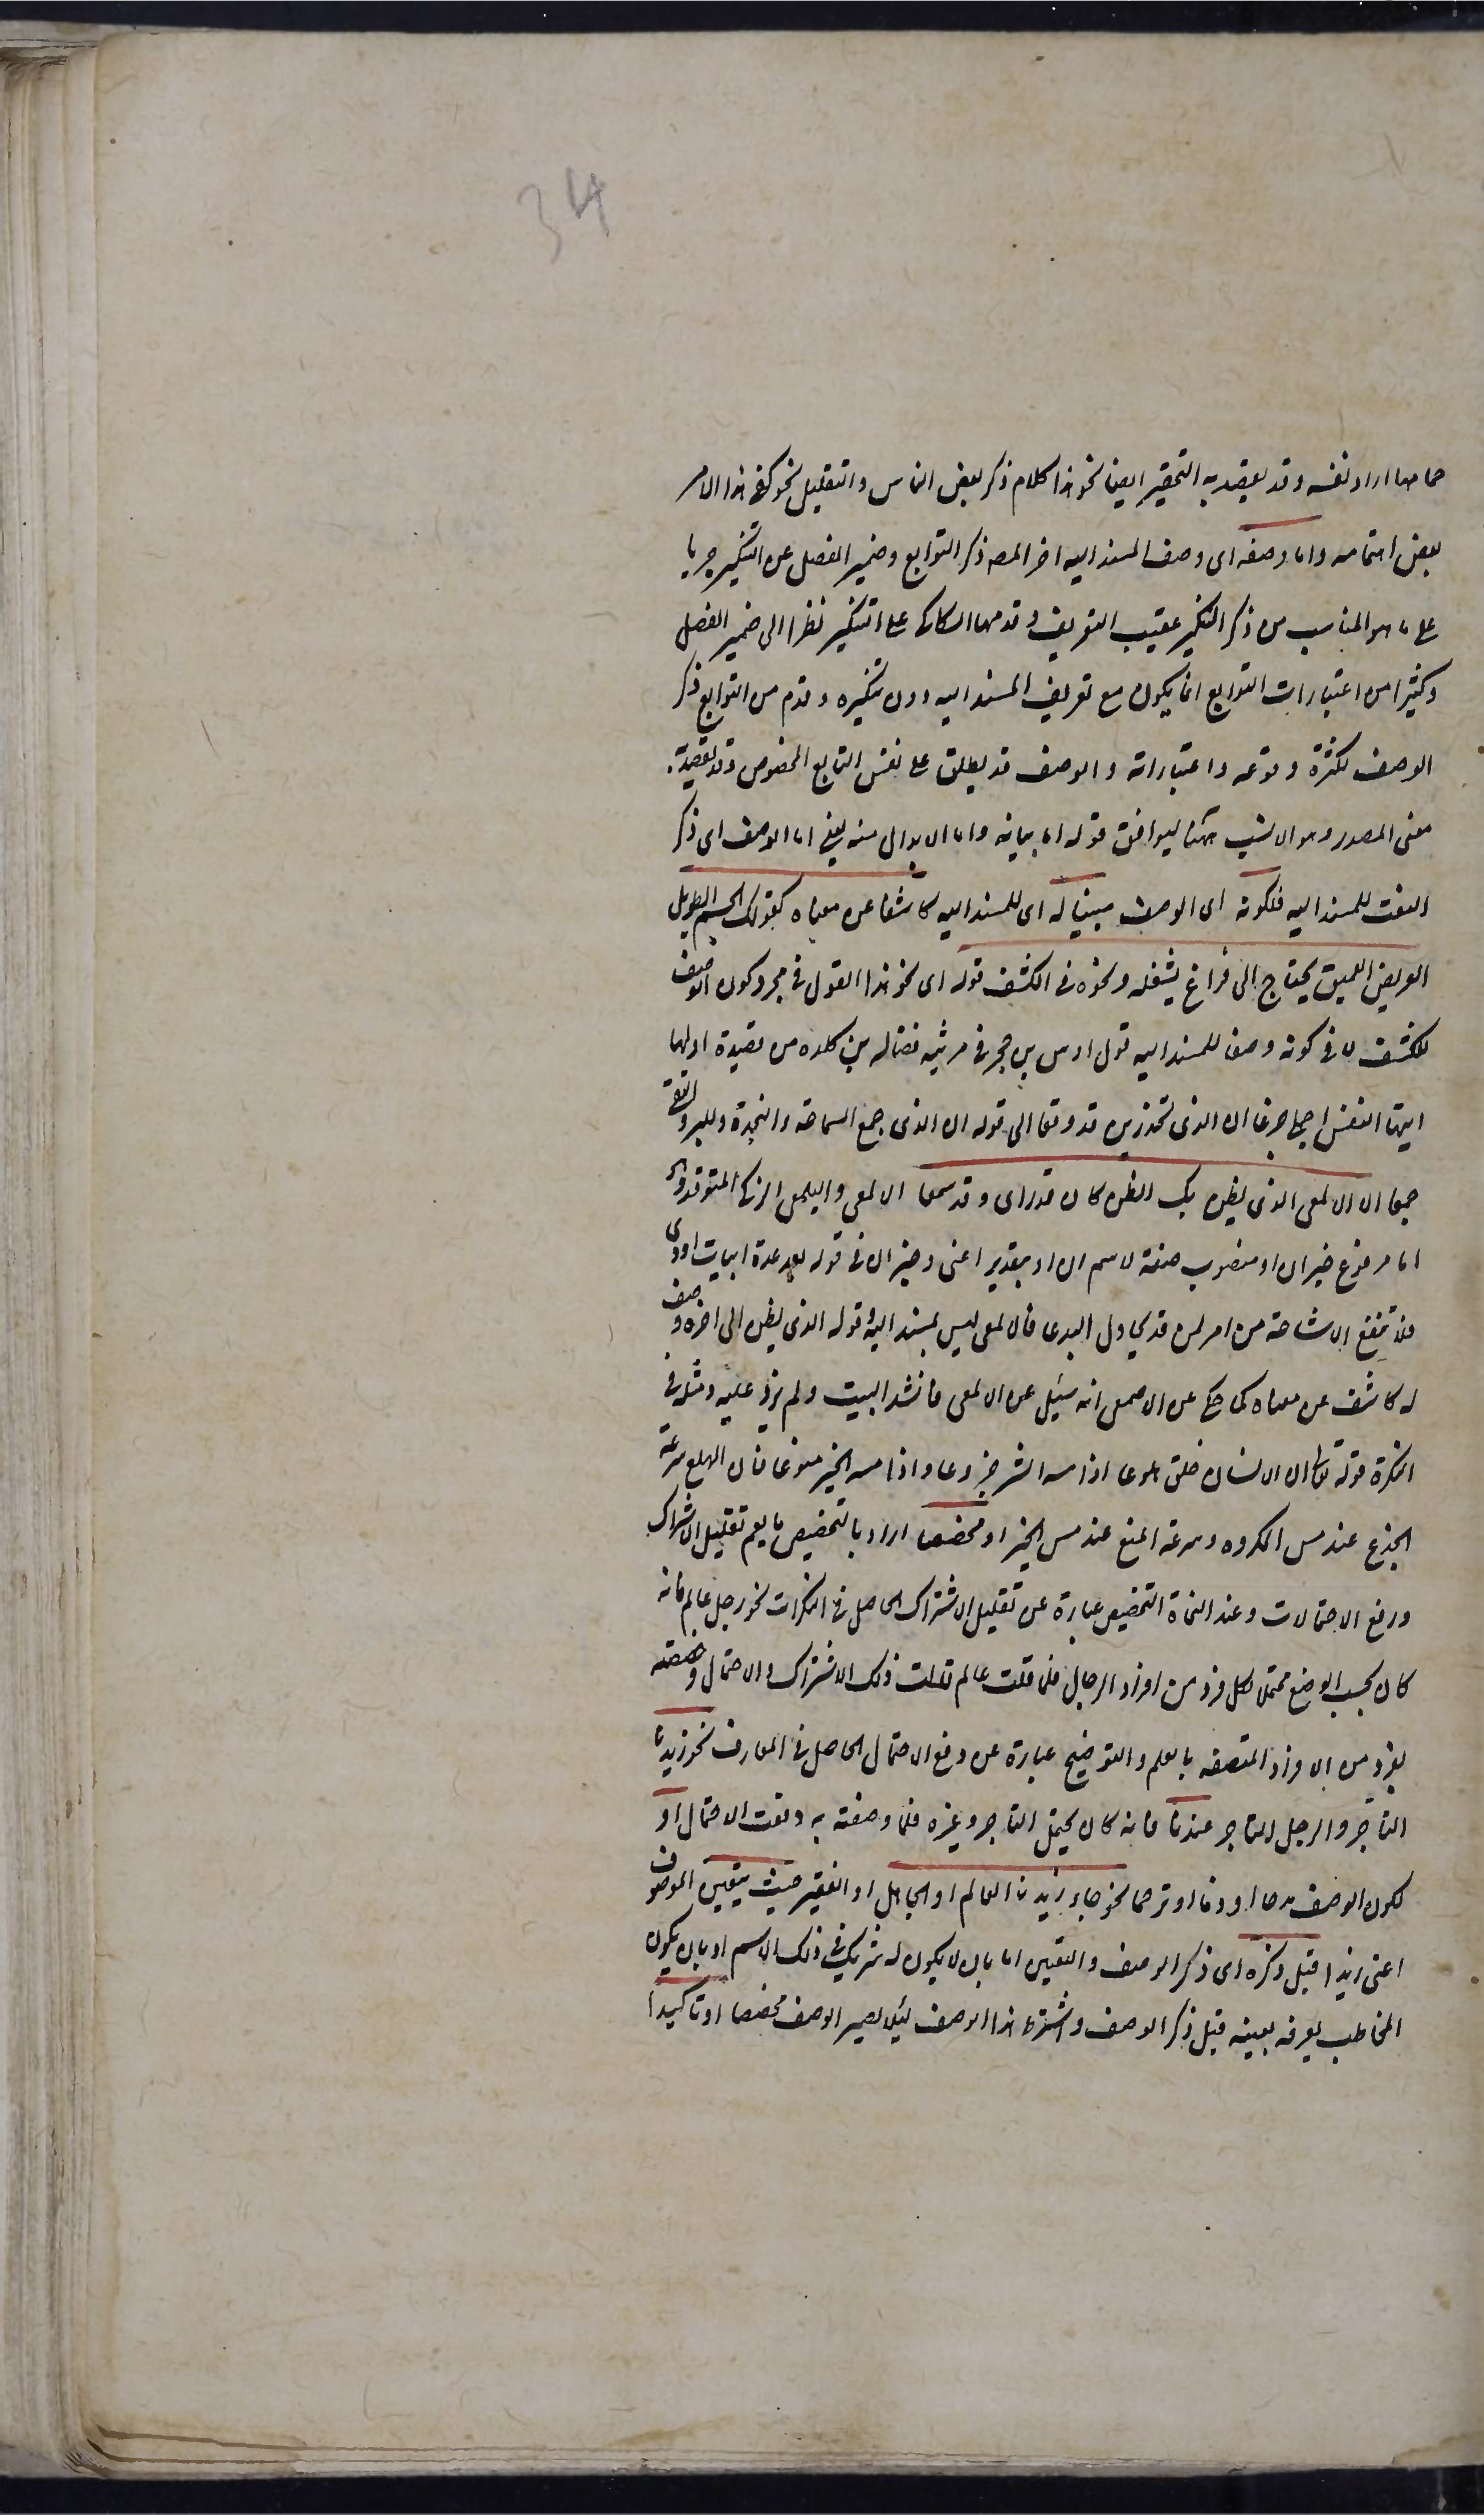 34
حمامها اراد نفسه وقد يقصد به التحقير ايضا نحو هذا كلام ذكره بعض الناس والتقليل نحو كفى هذا الامر
بعض اهتمامه واما وصفه اى وصف المسند اليه اخر المصه ذكر التوابع وضمير الفصل عن التنكير جريا
على ما هو المناسب من ذكر التنكير عقيب التعريف وقدمها السكاكى على التنكير نظرا الى ضمير الفصل
وكثيرا من اعتبارات التوابع انما يكون مع تعريف المسند اليه دون تنكيره وقدم من التوابع ذكر
الوصف لكثرة وقوعه واعتباراته والوصف قد يطلق على نفس التابع المخصوص وقد يقصد به
معنى المصدر وهو الانسب ههنا ليوافق قوله اما بيانه واما الابدال منه يعنى اما الوصف اى ذكر
النعت للمسند اليه فلكونه اى الوصف مبينا له اى للمسند اليه كاشفا عن معناه كقولك الجسم الطويل
العريض العميق يحتاج الى فراغ يشغله ونحوه فى الكشف قوله اى نحو هذا القول فى مجرد كون الوصف
للكشف لا فى كونه وصفا للمسند اليه قول اوس بن حجر فى مرثيه فضاله بن كلده من قصيدة اولها
ايتها النفس اجملى جزعا ان الذى تحذرين قد وقعا الى قوله ان الذى جمع السماحة والنجدة والبر والتقى
جمعا الالمعى الذى يظن بك الظن كان قد راى وقد سمعا الالمعى واليلمعى الزكى المتوقد وهو
اما مرفوع خبر ان او منصوب صفة لاسم ان او بتقدير اعنى وخبر ان فى قوله بعد عدة ابيات اودى
فلا تنفع الاشاحة من امر لمن قد يحاول البدعا فالالمعى ليس بمسند اليه وقوله الذى يظن الى اخره وصف
له كاشف عن معناه كما حكى عن الاصمعى انه سئل عن الالمعى فانشد البيت ولم يزد عليه ومثله فى
النكرة قوله تعالى ان الانسان خلق هلوعا اذا مسه الشر جزوعا واذا مسه الخير منوعا فان الهلع سرعة
الجزع عند مس المكروه وسرعة المنع عند مس الخير او مخصصا اراد بالتخصيص ما يعم تقليل الاشتراك
ورفع الاحتمالات وعند النحاة التخصيص عبارة عن تقليل الاشتراك الحاصل فى النكرات نحو رجل عالم فانه
كان بحسب الوضع محتملا لكل فرد من افراد الرجال فلما قلت عالم قللت ذلك الاشتراك والاحتمال وخصصته
بفرد من الافراد المتصفه بالعلم والتوضيح عبارة عن رفع الاحتمال الحاصل فى المعارف نحو زيد
التاجر والرجل التاجر عندنا فانه كان يحتمل التاجر وغيره فلما وصفته به رفعت الاحتمال او
لكون الوصف مدحا او ذما او ترحما نحو جاء زيد العالم او الجاهل او الفقير حيث يتعين الموصوف
اعنى زيدا قبل ذكره اى ذكر الوصف والتعين اما بان لا يكون له شريك فى ذلك الاسم او بان يكون
المخاطب يعرفه بعينه قبل ذكر الوصف واشترط هذا الوصف ليلا يصير الوصف مخصصا او تاكيدا